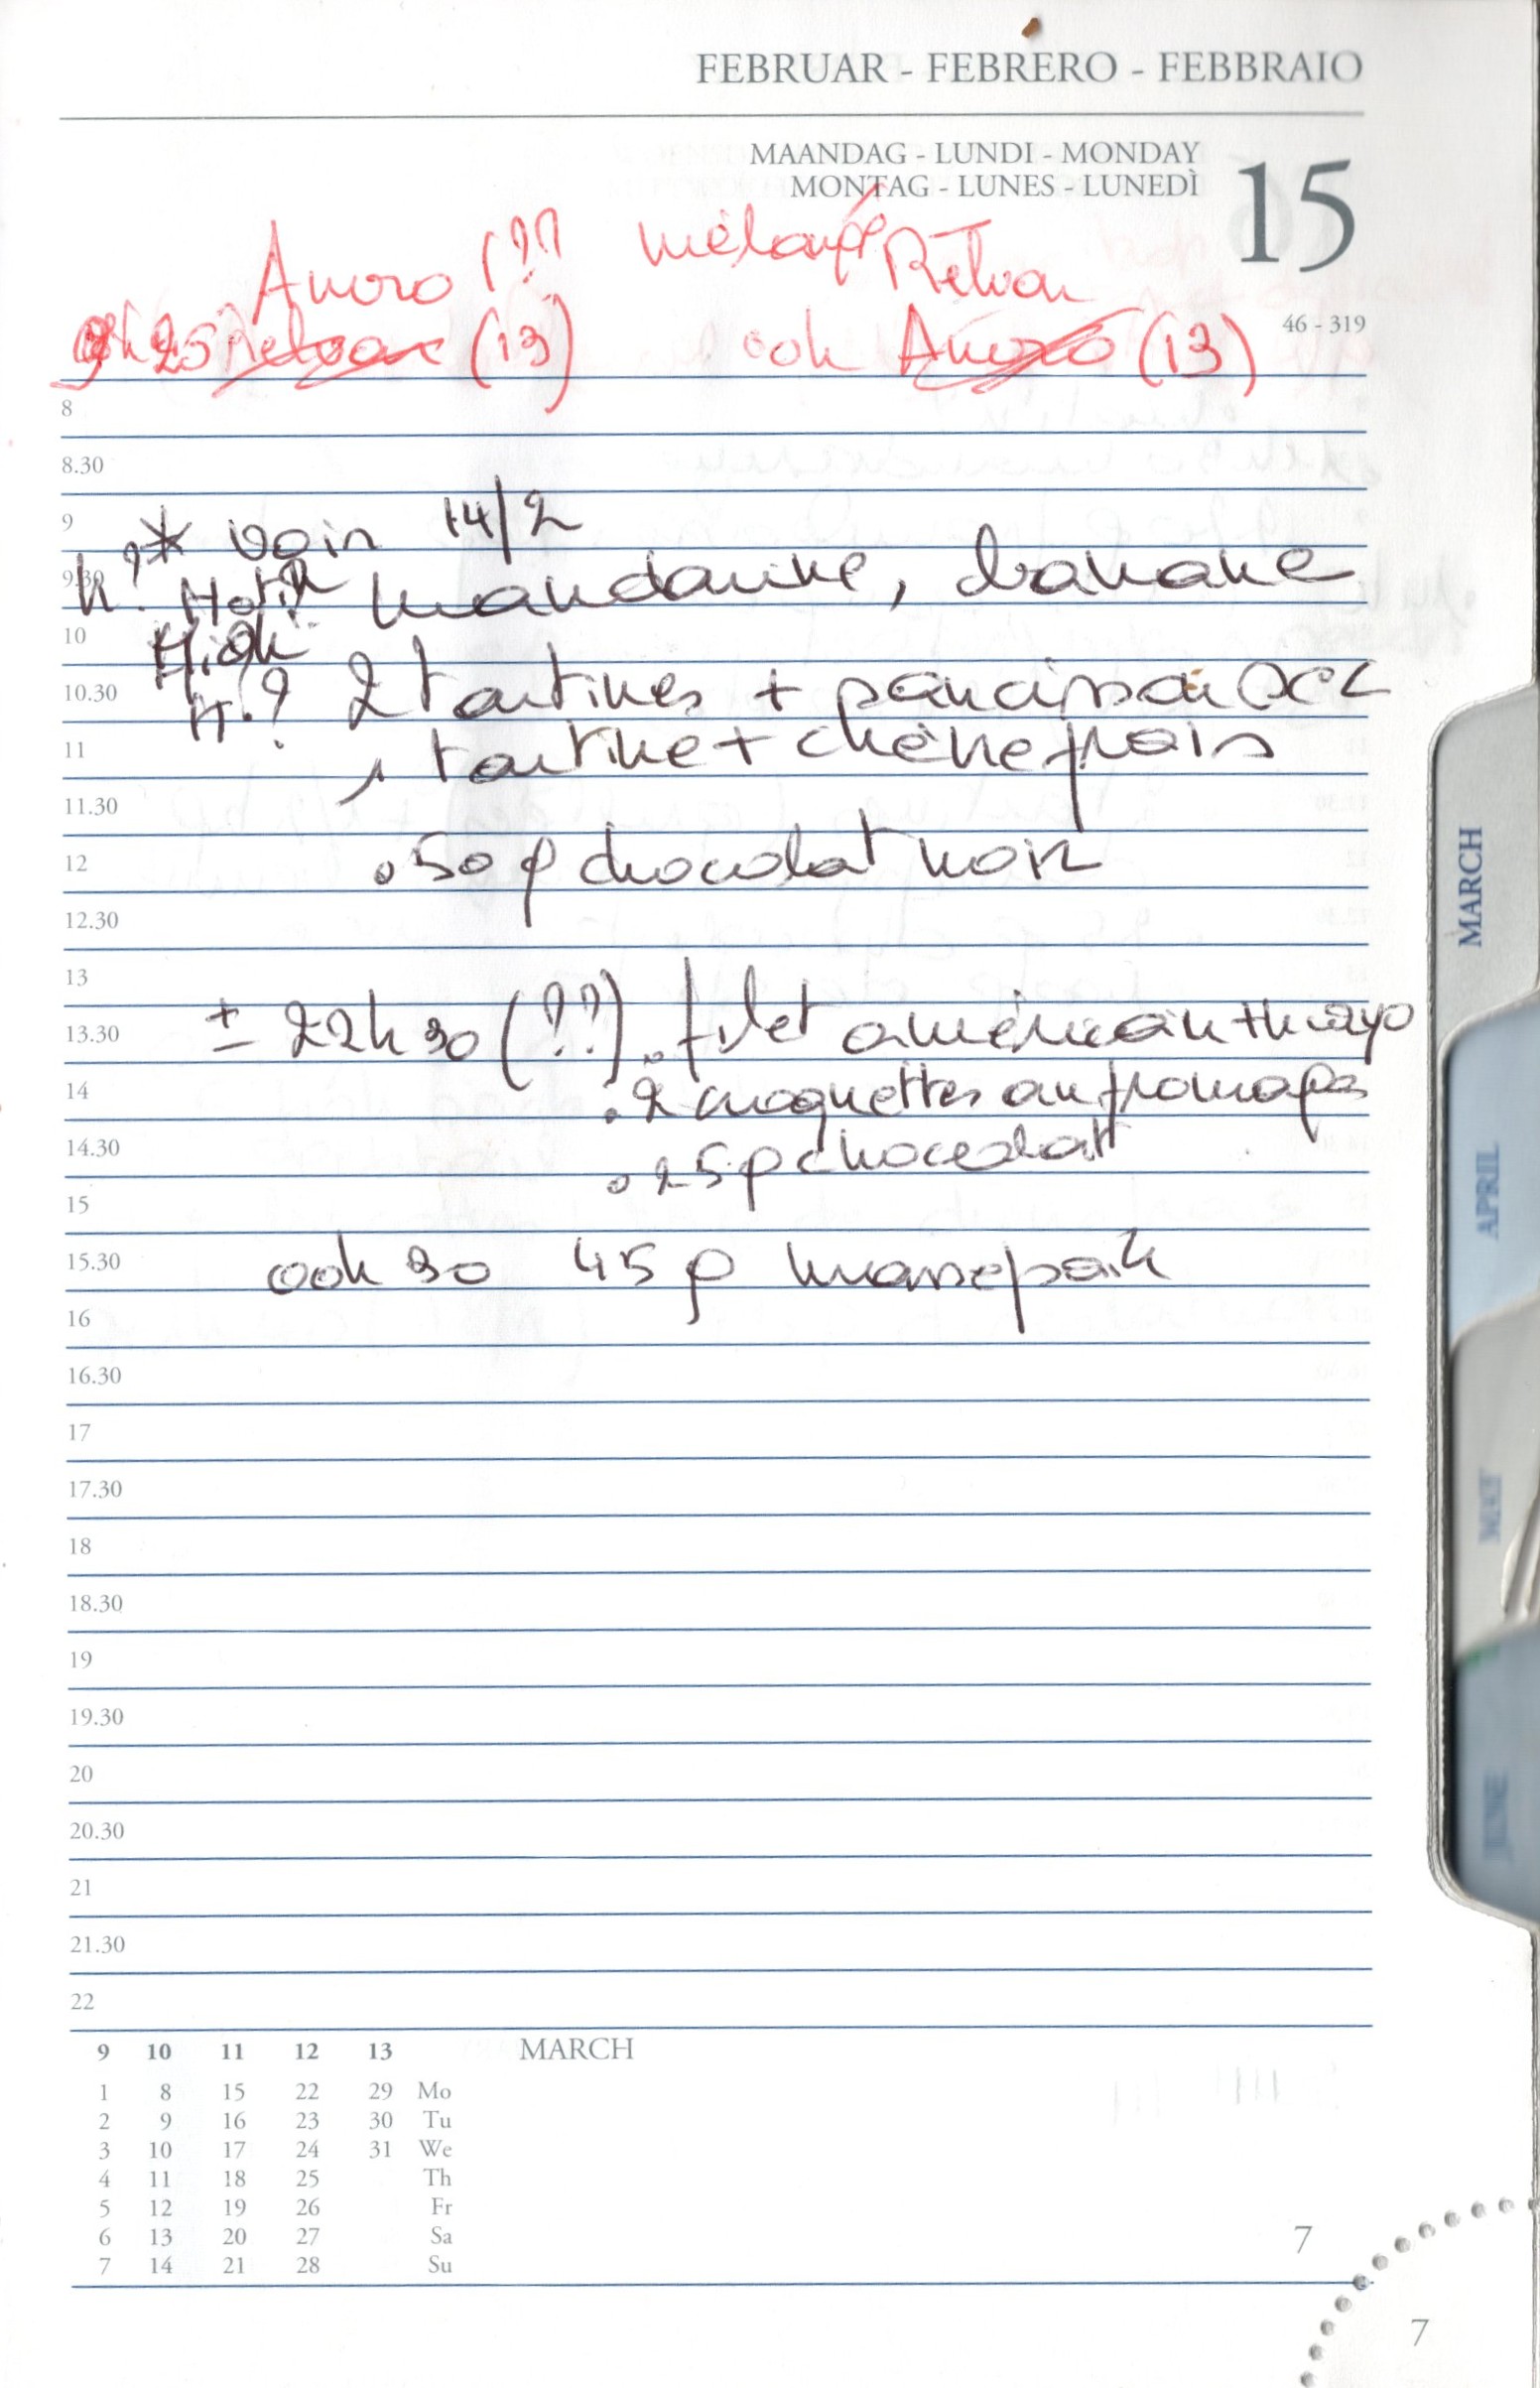 FEBRUAR - FEBRERO - FEBBRAIO
MAANDAG - LUNDI - MONDAY
MONTAG - LUNES - LUNEDÌ
15
46 - 319
(?? mélangé
(13) 00h (13)
8
8.30
9
?* voir 14/2
9.30
h? mandarine, banane
10
10.30
? 2 tartines + saucisson sec
11
1 tartine + chèvre frais
11.30
12
. 50 g chocolat noir
12.30
13
13.30
± 22h30 (??) . filet américain + mayo
14
. 2 croquettes au fromage
14.30
. 25 g chocolat
15
15.30
00h30 45 g massepain
16
16.30
17
17.30
18
18.30
19
19.30
20
20.30
21
21.30
22
9 10 11 12 13 MARCH
1 8 15 22 29 Mo
2 9 16 23 30 Tu
3 10 17 24 31 We
4 11 18 25 Th
5 12 19 26 Fr
6 13 20 27 Sa
7 14 21 28 Su
7
7
MARCH
APRIL
MAY
JUNE